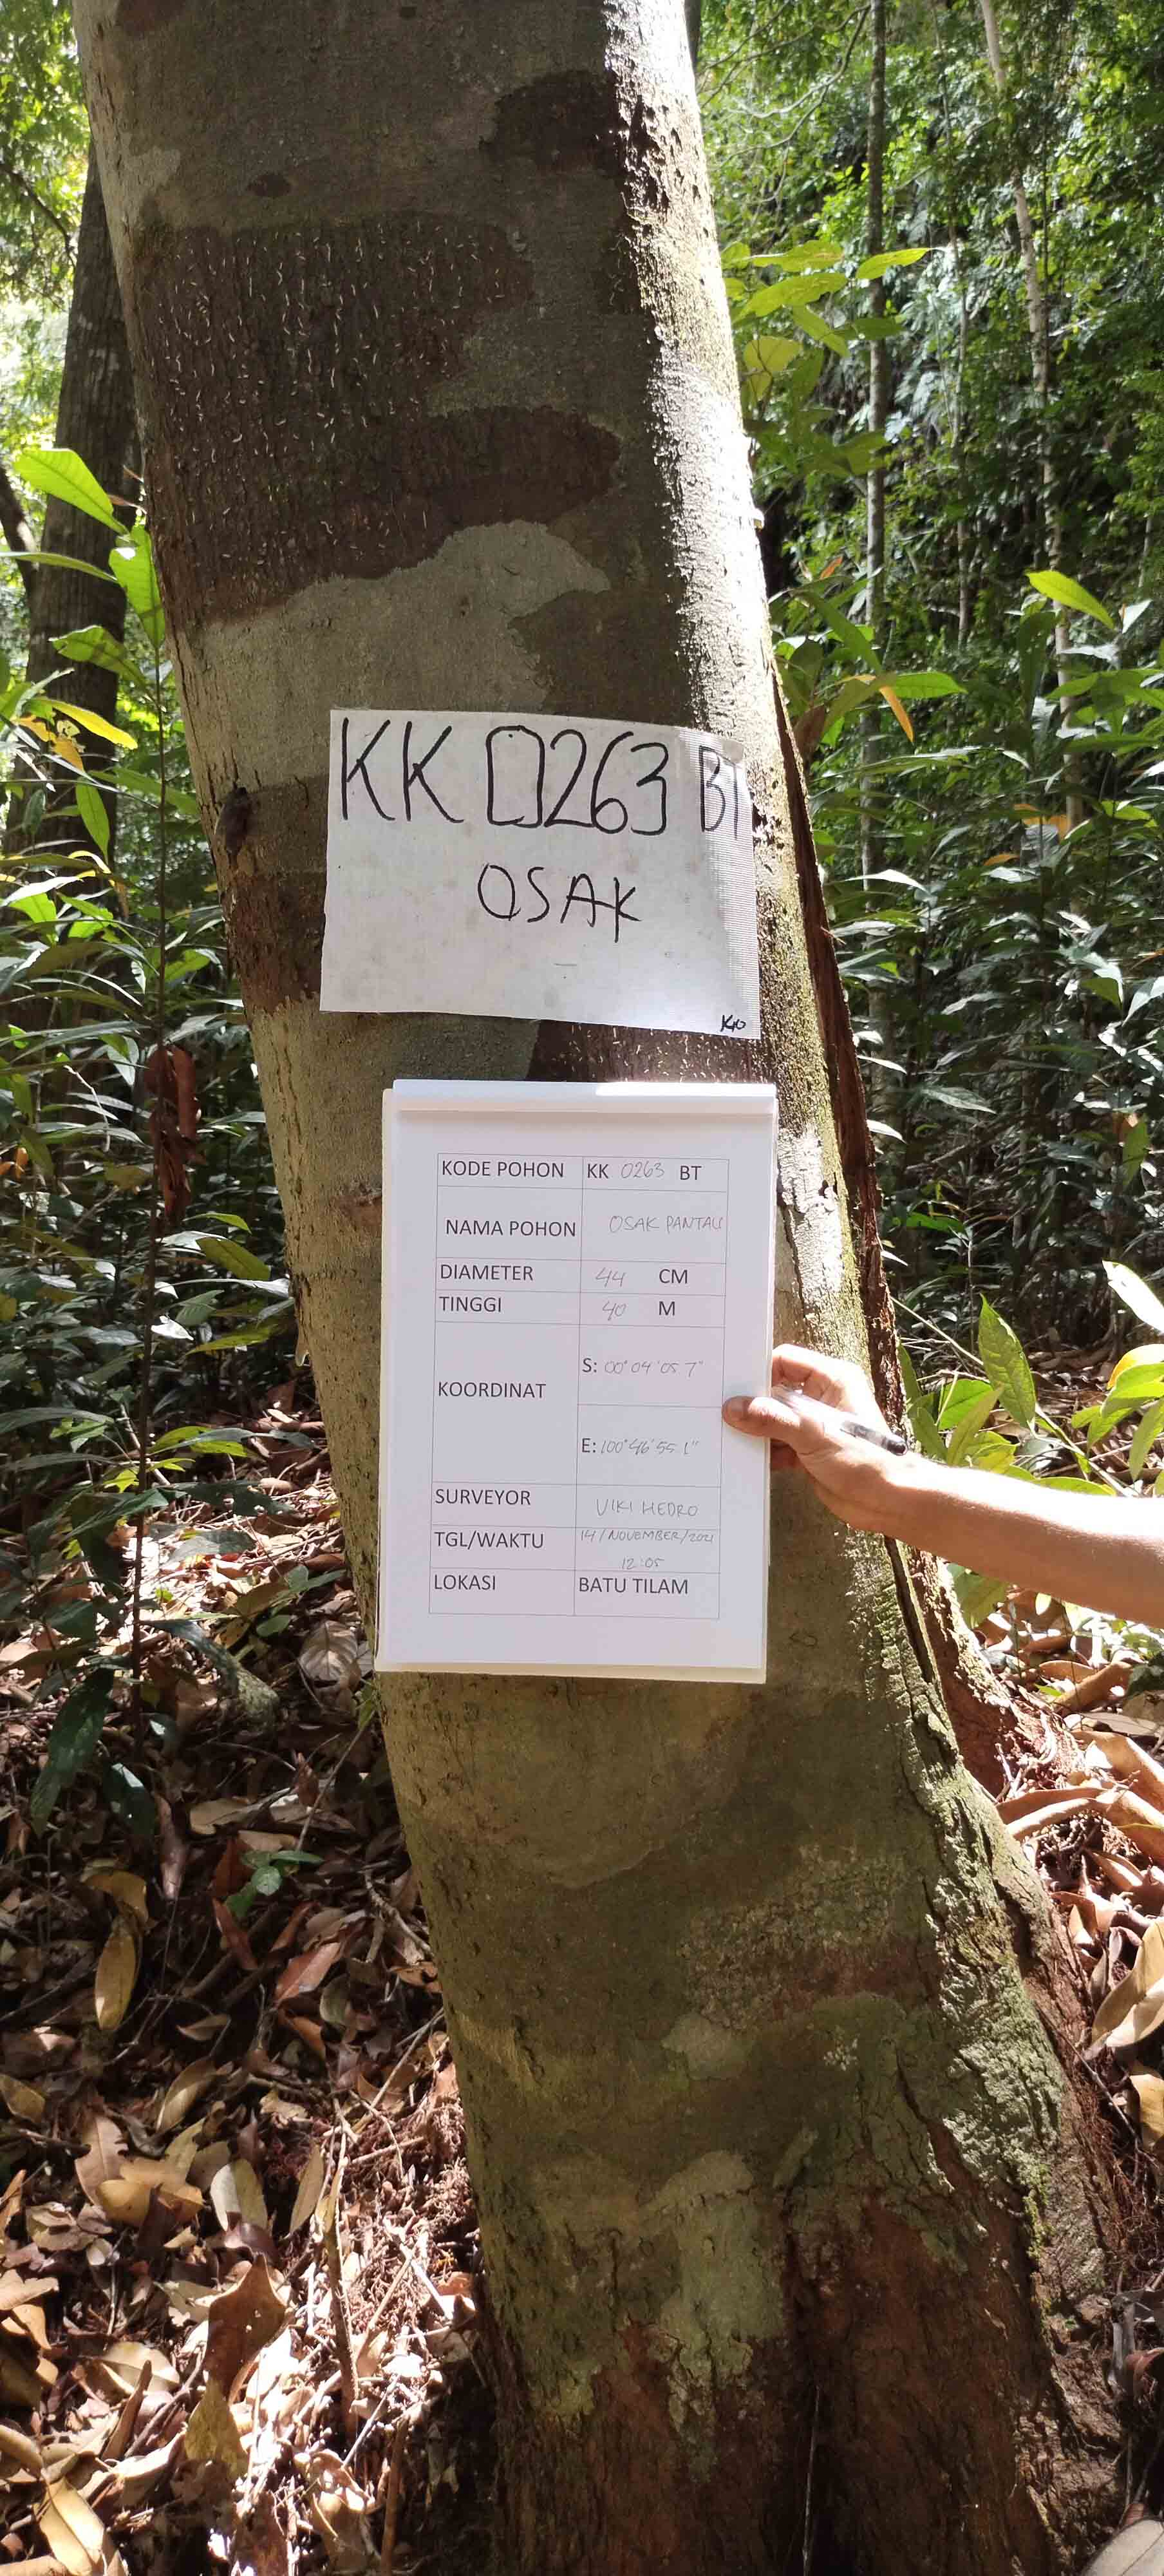 KK 0263 BT
OSAK
KODE POHON KK 0263 BT
NAMA POHON OSAK PANTAU
DIAMETER 44 CM
TINGGI 40 M
KOORDINAT
S: 00° 04' 05.7"
E: 100° 46' 55.1"
SURVEYOR VIKI HEDRO
TGL/WAKTU 14/NOVEMBER/2021
12:05
LOKASI BATU TILAM